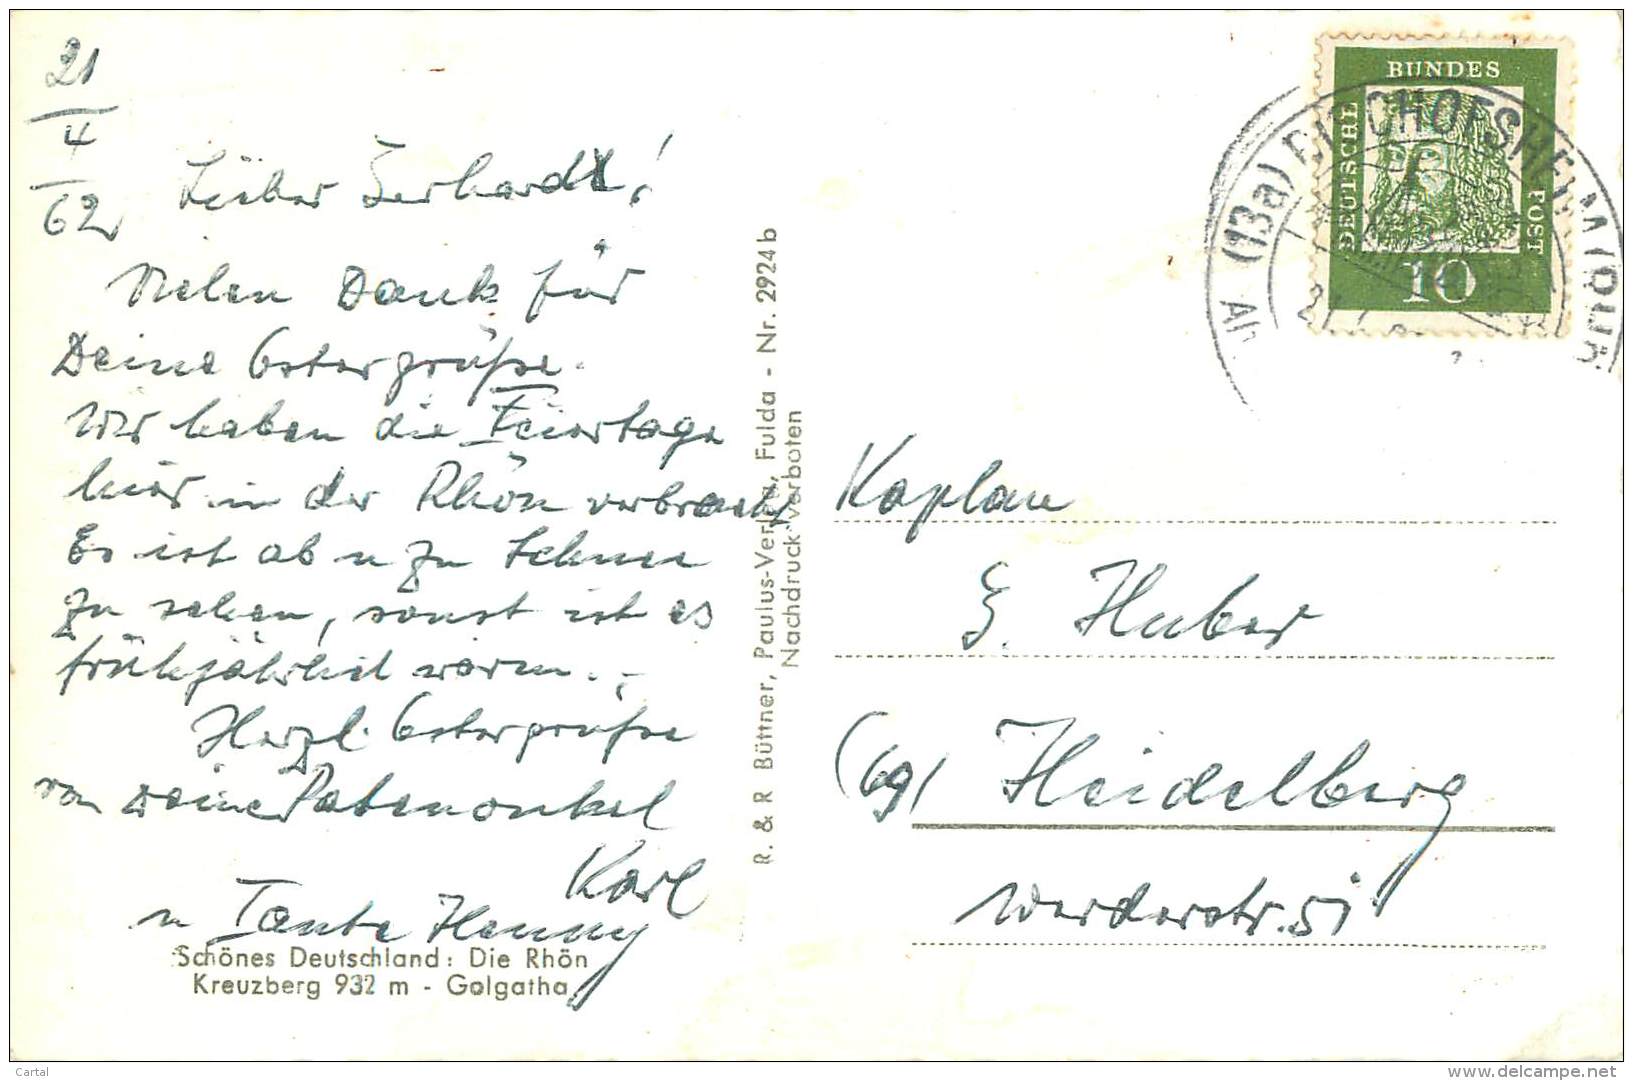 21
4
62
Lieber Gerhardt!
Vielen Dank für
Deine Ostergrüße.
Wir haben die Feiertage
hier in der Rhön verbracht
Es ist ab u zu Schnee
zu sehen, sonst ist es
frühjährlich warm. -
Herzl. Ostergrüße
von Deinem Patenonkel
Karl
u Tante Henny
Schönes Deutschland: Die Rhön
Kreuzberg 932 m - Golgatha
R. & R Büttner, Paulus-Verlag, Fulda - Nr. 2924 b
Nachdruck verboten
BUNDES
DEUTSCHE
POST
10
(13a) BISCHOFSHEIM (RHÖN
Kaplan
G. Huber
(69) Heidelberg
Werderstr. 51
Cartal
www.delcampe.net